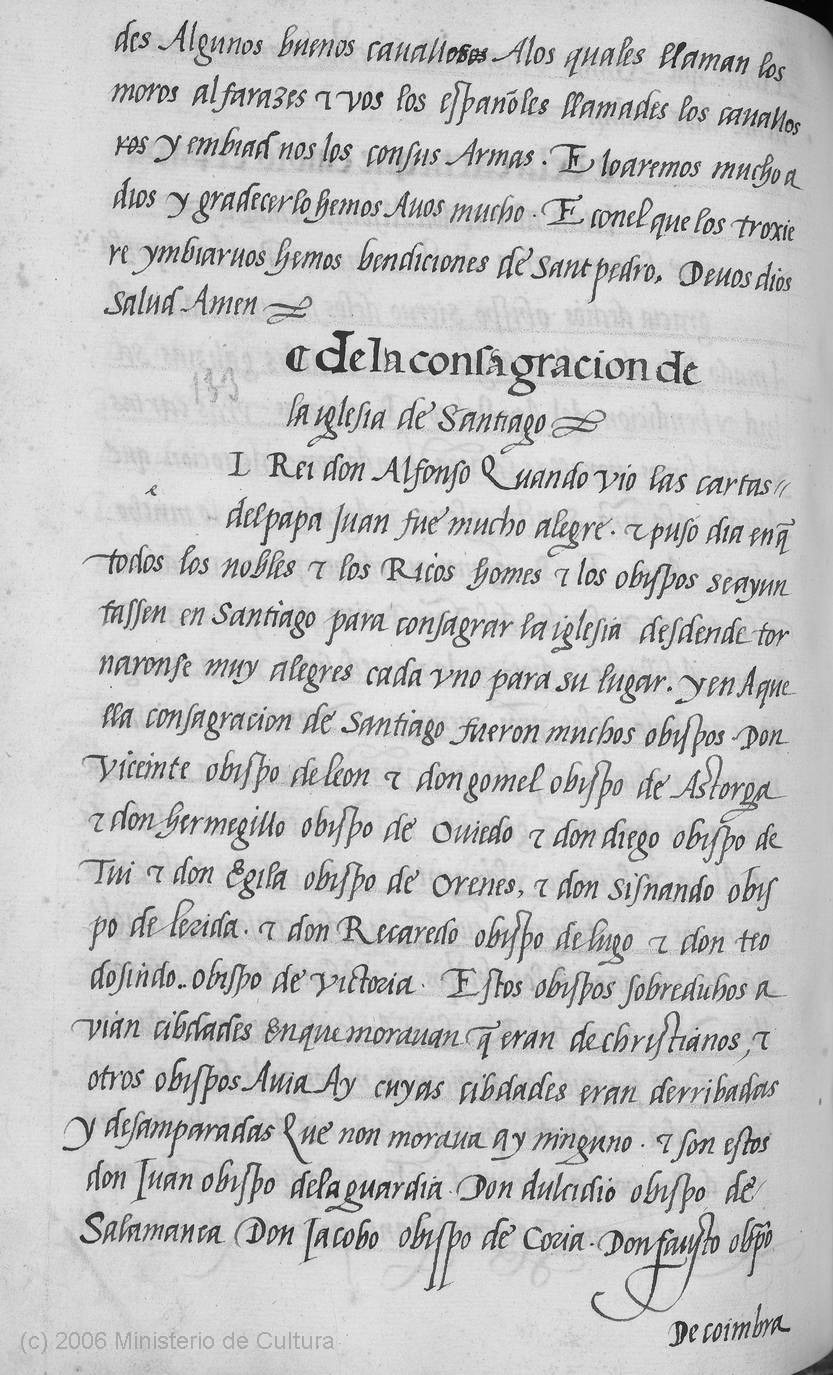 des Algunos buenos cauallosos Alos quales llaman los
moros alfarazes τ vos los españoles llamades los cauallos
ros y embiad nos los consus Armas . E loaremos mucho a
dios y gradecerlo hemos Auos mucho . E conel que los troxie
re ymbiaruos hemos bendiciones de Sant pedro. Deuos dios
Salud Amen
¶ de la consagracion de
133
la iglesia de Santiago
L Rei don Alfonso Quando vio las cartas //
e
del papa Juan fue mucho alegre . τ puso dia en q̃
todos los nobles τ los Ricos homes τ los obispos se ayun
tassen en Santiago para consagrar la iglesia desdende tor
naronse muy alegres cada vno para su lugar . y en Aque
lla consagracion de Santiago fueron muchos obispos . Don
Viceinte obispo de leon τ don gomel obispo de Astorga
τ don hermegillo obispo de Ouiedo τ don diego obispo de
Tui τ don Egila obispo de Orenes, τ don Sisnando obis
po de lerida . τ don Recaredo obispo de lugo τ don teo
dosindo .. obispo de victoria . Estos obispos sobreduhos a
vian cibdades En que morauan q̃ eran de christianos, τ
otros obispos Auia Ay cuyas cibdades eran derribadas
y desamparadas Que non moraua ay ninguno . τ son estos
don Juan obispo dela guardia . Don dulcidio obispo de
Salamanca Don Jacobo obispo de Coria . Don fausto obp̃o
De coimbra
(c) 2006 Ministerio de Cultura